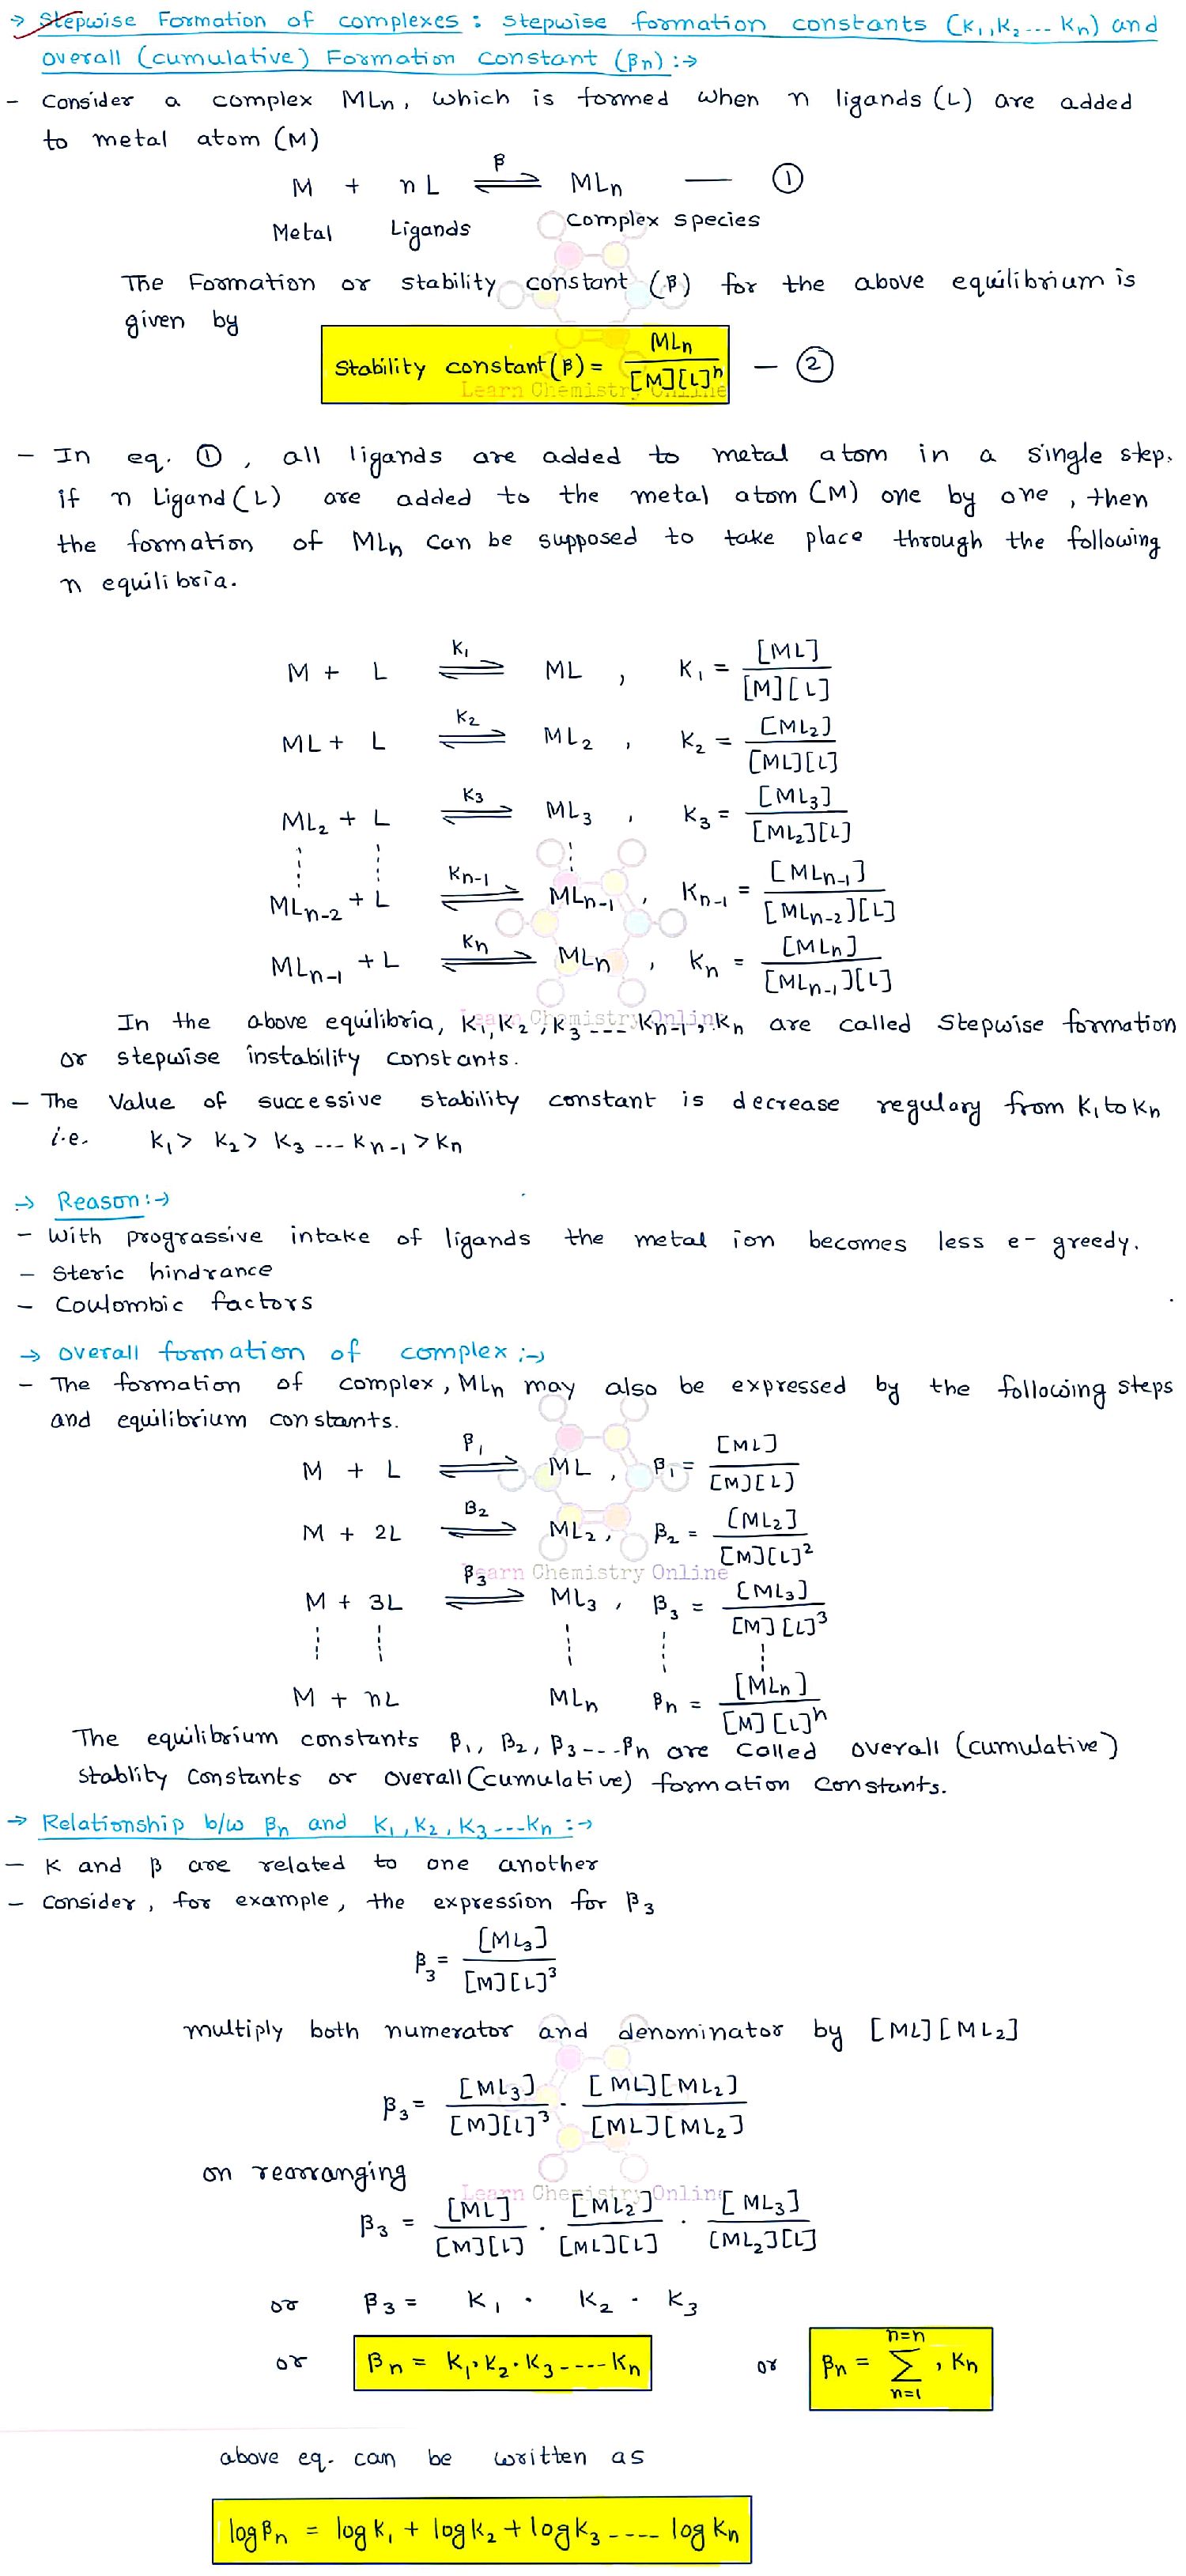 → Stepwise Formation of complexes : stepwise formation constants (K₁,K₂--- Kn) and
overall (cumulative) Formation constant (βn) :→
- Consider a complex MLn, which is formed when n ligands (L) are added
to metal atom (M)
M + nL ⇌ (β) MLn — ①
Metal Ligands complex species
The Formation or stability constant (β) for the above equilibrium is
given by
Stability constant(β) = MLn / [M][L]ⁿ — ②
Learn Chemistry Online
- In eq. ① , all ligands are added to metal atom in a single step.
if n Ligand(L) are added to the metal atom (M) one by one , then
the formation of MLn can be supposed to take place through the following
n equilibria.
M + L ⇌ (K₁) ML , K₁ = [ML] / [M][L]
ML + L ⇌ (K₂) ML₂ , K₂ = [ML₂] / [ML][L]
ML₂ + L ⇌ (K₃) ML₃ , K₃ = [ML₃] / [ML₂][L]
MLn-2 + L ⇌ (Kn-1) MLn-1 , Kn-1 = [MLn-1] / [MLn-2][L]
MLn-1 + L ⇌ (Kn) MLn , Kn = [MLn] / [MLn-1][L]
Learn Chemistry Online
In the above equilibria, K₁,K₂,K₃---Kn-1,Kn are called Stepwise formation
or stepwise instability constants.
- The Value of successive stability constant is decrease regulary from K₁ to Kn
i.e. K₁> K₂> K₃ --- Kn-1 >Kn
→ Reason:→
- With prograssive intake of ligands the metal ion becomes less e- greedy.
- Steric hindrance
- Coulombic factors
→ overall formation of complex :→
- The formation of complex, MLn may also be expressed by the following steps
and equilibrium constants.
M + L ⇌ (β₁) ML , β₁= [ML] / [M][L]
M + 2L ⇌ (β₂) ML₂, β₂ = [ML₂] / [M][L]²
Learn Chemistry Online
M + 3L ⇌ (β₃) ML₃ , β₃ = [ML₃] / [M][L]³
M + nL MLn βn = [MLn] / [M][L]ⁿ
The equilibrium constants β₁, β₂, β₃---βn are called overall (cumulative)
stablity constants or overall(cumulative) formation constants.
→ Relationship b/w βn and K₁,K₂,K₃---Kn :→
- K and β are related to one another
- Consider, for example, the expression for β₃
β₃= [ML₃] / [M][L]³
multiply both numerator and denominator by [ML][ML₂]
β₃= [ML₃] / [M][L]³ . [ML][ML₂] / [ML][ML₂]
on rearranging
Learn Chemistry Online
β₃ = [ML] / [M][L] . [ML₂] / [ML][L] . [ML₃] / [ML₂][L]
or β₃ = K₁ . K₂ . K₃
or βn = K₁.K₂.K₃-----Kn or βn = n=n Σ n=1 , Kn
above eq. can be written as
logβn = logK₁ + logK₂ + logK₃ ---- logKn